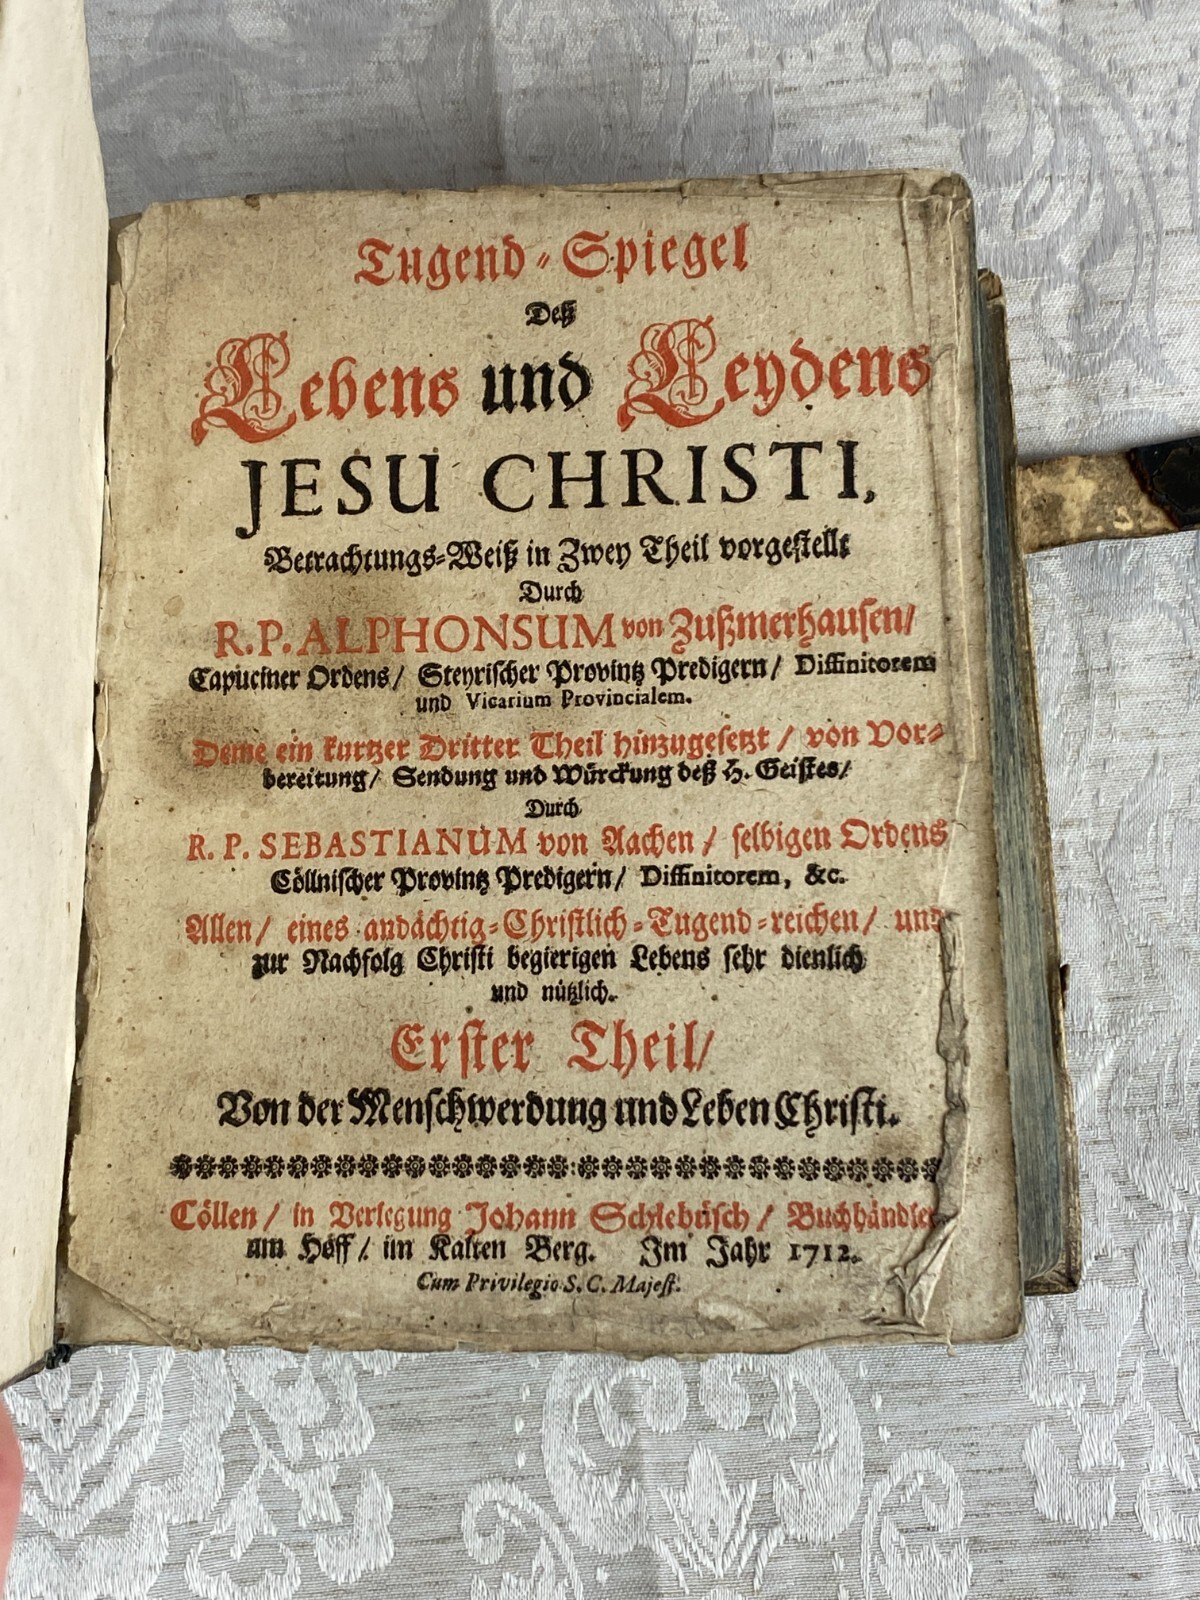 Tugend-Spiegel
Deß
Lebens und Leydens
JESU CHRISTI,
Betrachtungs-Weiß in Zwey Theil vorgestellt
Durch
R. P. ALPHONSUM von Zußmerhausen/
Capuciner Ordens/ Steyrischer Provintz Predigern/ Diffinitorem
und Vicarium Provincialem.
Deme ein kurtzer Dritter Theil hinzugesetzt / von Vor-
bereitung/ Sendung und Würckung deß H. Geistes/
Durch
R. P. SEBASTIANUM von Aachen / selbigen Ordens
Cöllnischer Provintz Predigern/ Diffinitorem, &c.
Allen/ eines andächtig-Christlich-Tugend-reichen/ und
zur Nachfolg Christi begierigen Lebens sehr dienlich
und nützlich.
Erster Theil/
Von der Menschwerdung und Leben Christi.
Cöllen / in Verlegung Johann Schlebusch / Buchhändler
am Hoff / im Kalten Berg. Im Jahr 1712.
Cum Privilegio S. C. Majest.